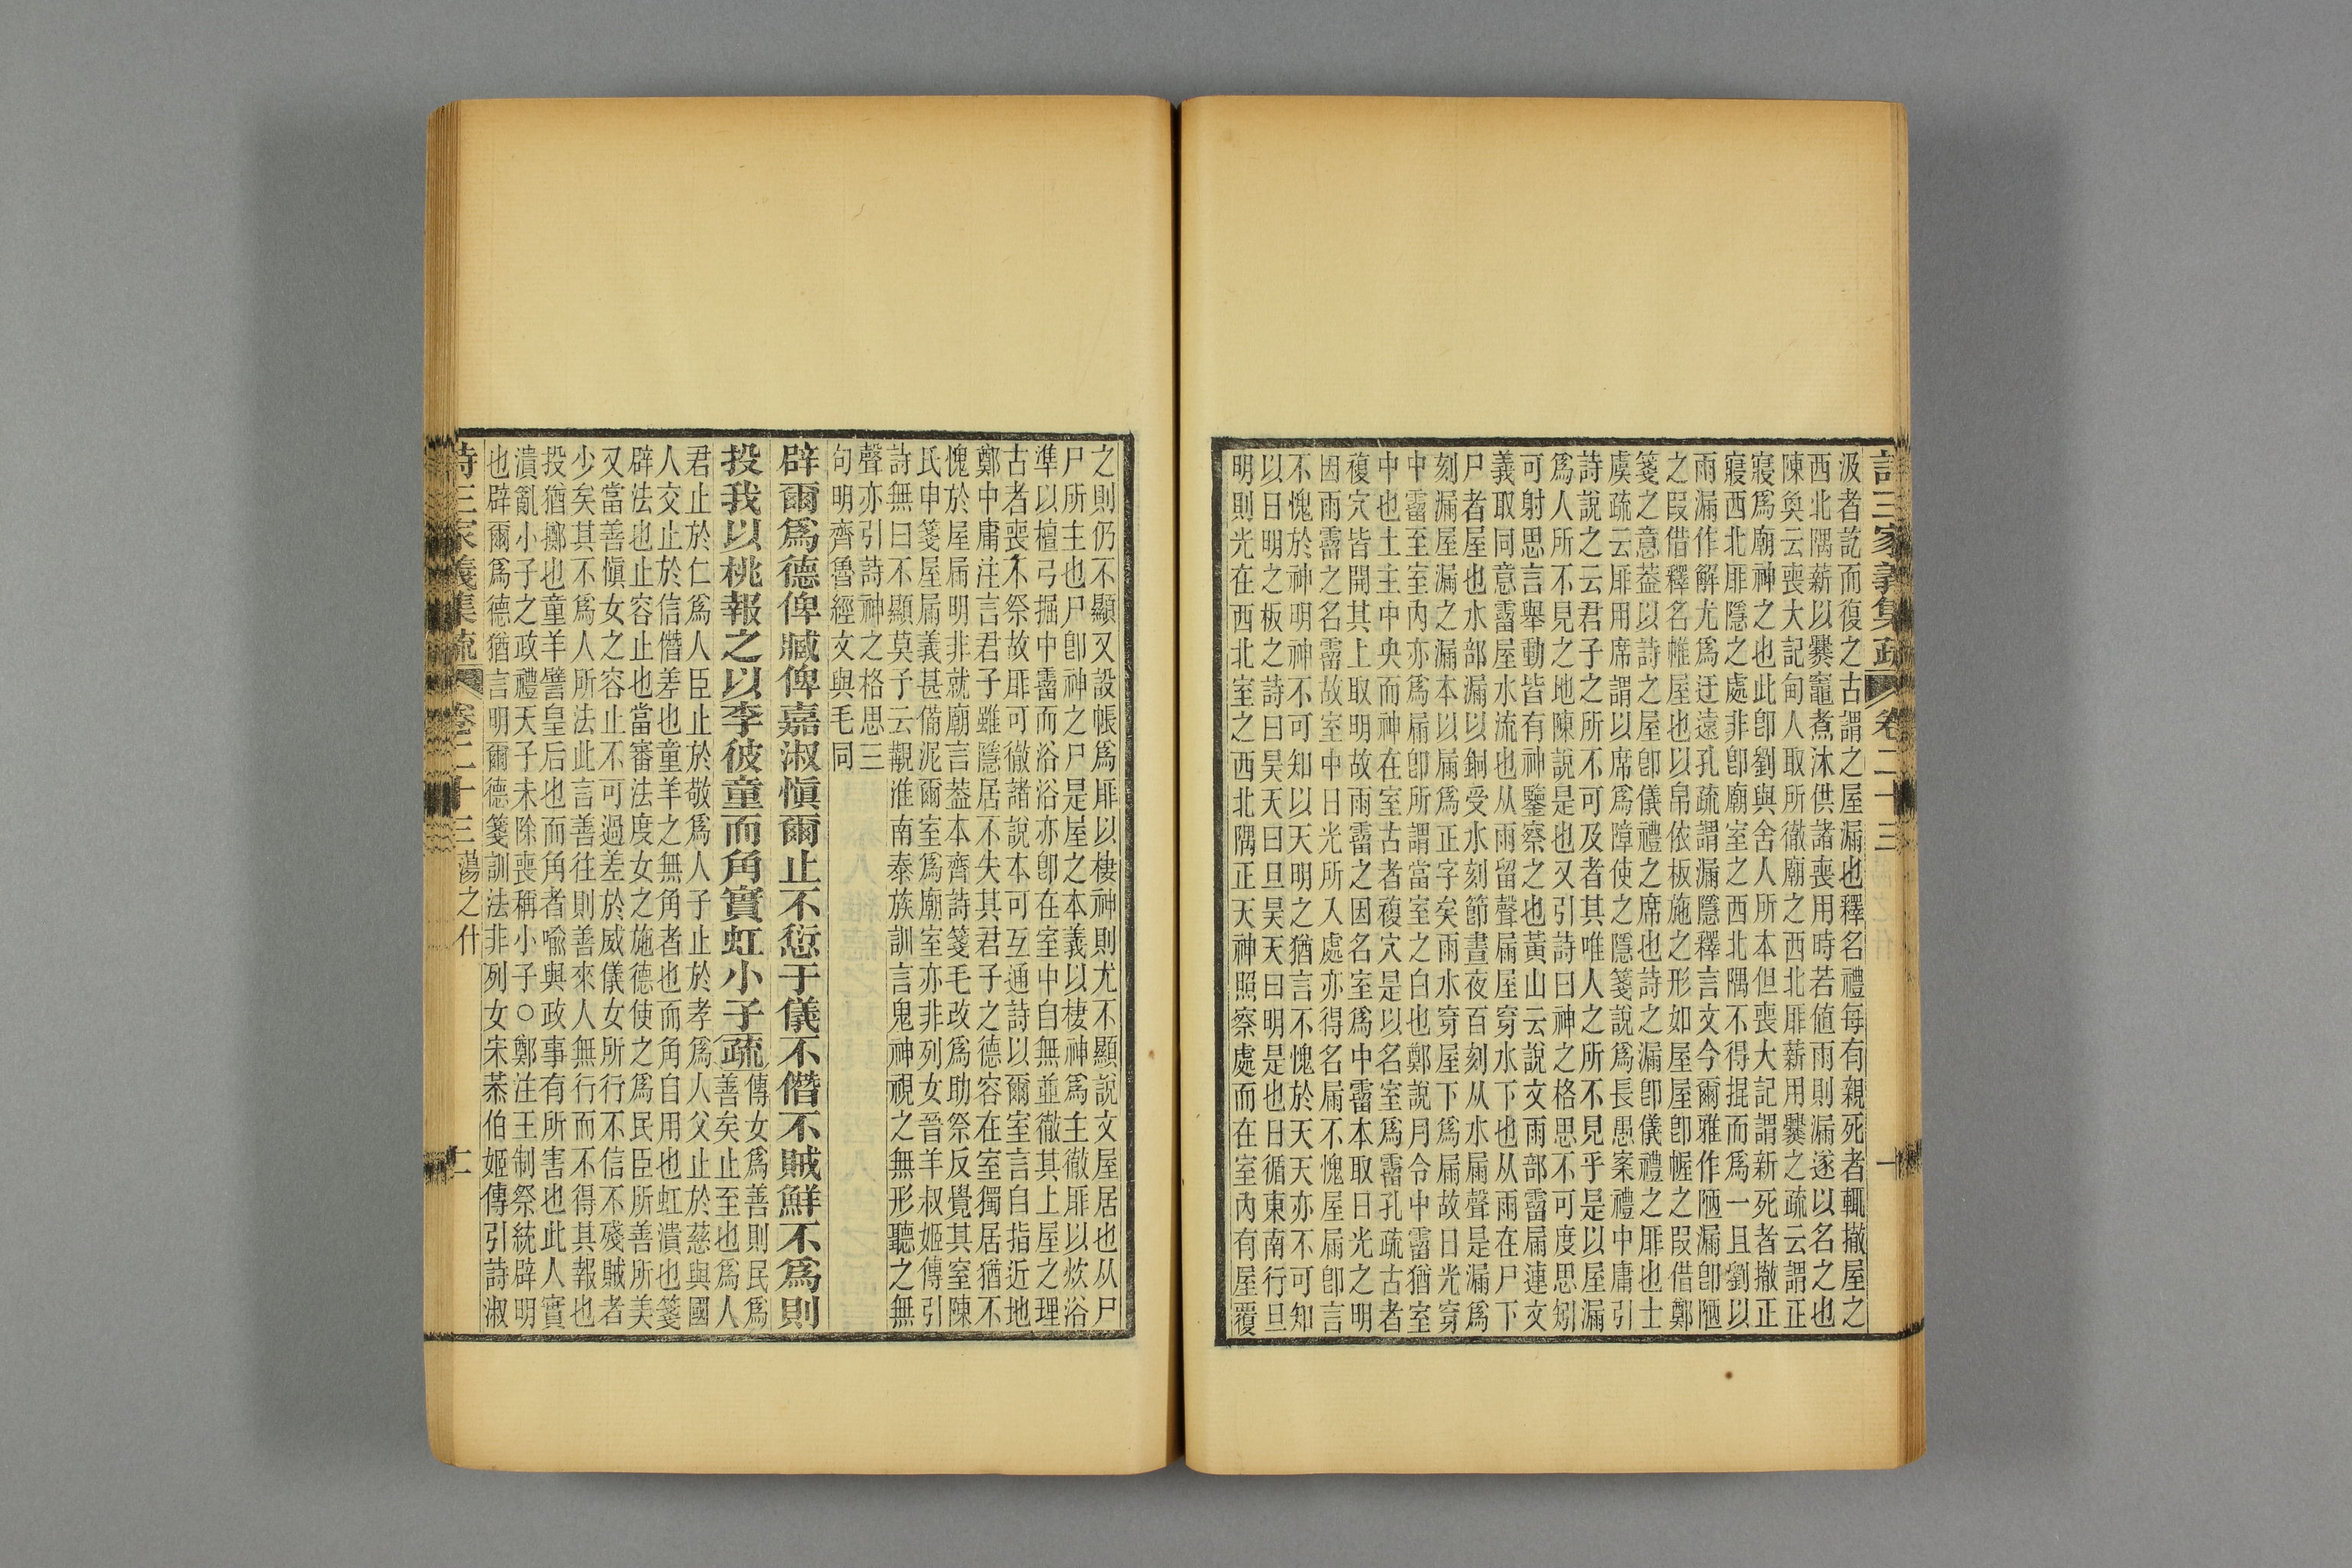 詩三家義集疏 卷二十三 一
汲者訖而復之古謂之屋漏也釋名禮每有親死者輒撤屋之
西北隅薪以爨竈煮沐供諸喪用時若值雨則漏遂以名之也
陳奐云喪大記甸人取所徹廟之西北厞薪用爨之疏云謂正
寢爲廟神之也此卽劉與舍人所本但喪大記謂新死者撤正
寢西北厞隱之處非卽廟室之西北隅不得掍而爲一且劉以
雨漏作解尤爲迂遠孔疏謂漏隱釋言文今爾雅作陋漏卽陋
之叚借釋名帷屋也以帛依板施之形如屋屋卽幄之叚借鄭
箋之意葢以詩之屋卽儀禮之席也詩之漏卽儀禮之厞也士
虞疏云厞用席謂以席爲障使之隱箋說爲長愚案禮中庸引
詩說之云君子之所不可及者其唯人之所不見乎是以屋漏
爲人所不見之地陳說是也又引詩曰神之格思不可度思矧
可射思言舉動皆有神鑒察之也黃山云說文雨部霤屚連文
義取同意霤屋水流也从雨留聲屚屋穿水下也从雨在尸下
尸者屋也水部漏以銅受水刻節晝夜百刻从水屚聲是漏爲
刻漏屋漏之漏本以屚爲正字矣雨水穿屋下爲屚故日光穿
中霤至室內亦爲屚卽所謂當室之白也鄭說月令中霤猶室
中也土主中央而神在室古者複穴是以名室爲霤孔疏古者
複穴皆開其上取明故雨霤之因名室爲中霤本取日光之明
因雨霤之名霤故室中日光所入處亦得名屚不愧屋屚卽言
不愧於神明神不可知以天明之猶言不愧於天天亦不可知
以日明之板之詩曰昊天曰旦昊天曰明是也日循東南行旦
明則光在西北室之西北隅正天神照察處而在室內有屋覆
之則仍不顯又設帳爲厞以棲神則尤不顯說文屋居也从尸
尸所主也尸卽神之尸是屋之本義以棲神爲主徹厞以炊浴
準以檀弓掘中霤而浴浴亦卽在室中白無並徹其上屋之理
古者喪不祭故厞可徹諸說本可互通詩以爾室言白指近地
鄭中庸注言君子雖隱居不失其君子之德容在室獨居猶不
愧於屋屚明非就廟言葢本齊詩箋毛改爲助祭反覺其室陳
氏申箋屋屚義甚備泥爾室爲廟室亦非列女晉羊叔姬傳引
詩無曰不顯莫予云覯淮南泰族訓言鬼神視之無形聽之無
聲亦引詩神之格思三
句明齊魯經文與毛同
辟爾爲德俾臧俾嘉淑愼爾止不愆于儀不僭不賊鮮不爲則
投我以桃報之以李彼童而角實虹小子疏
傳女爲善則民爲
善矣止至也爲人
君止於仁爲人臣止於敬爲人子止於孝爲人父止於慈與國
人交止於信僭差也童羊之無角者也而角自用也虹潰也箋
辟法也止容止也當審法度女之施德使之爲民臣所善所美
又當善愼女之容止不可過差於威儀女所行不信不殘賊者
少矣其不爲人所法此言善往則善來人無行而不得其報也
投猶擲也童羊譬皇后也而角者喻與政事有所害也此人實
潰亂小子之政禮天子未除喪稱小子○鄭注王制祭統辟明
也辟爾爲德猶言明爾德箋訓法非列女宋恭伯姬傳引詩淑
詩三家義集疏 卷二十三 蕩之什 二